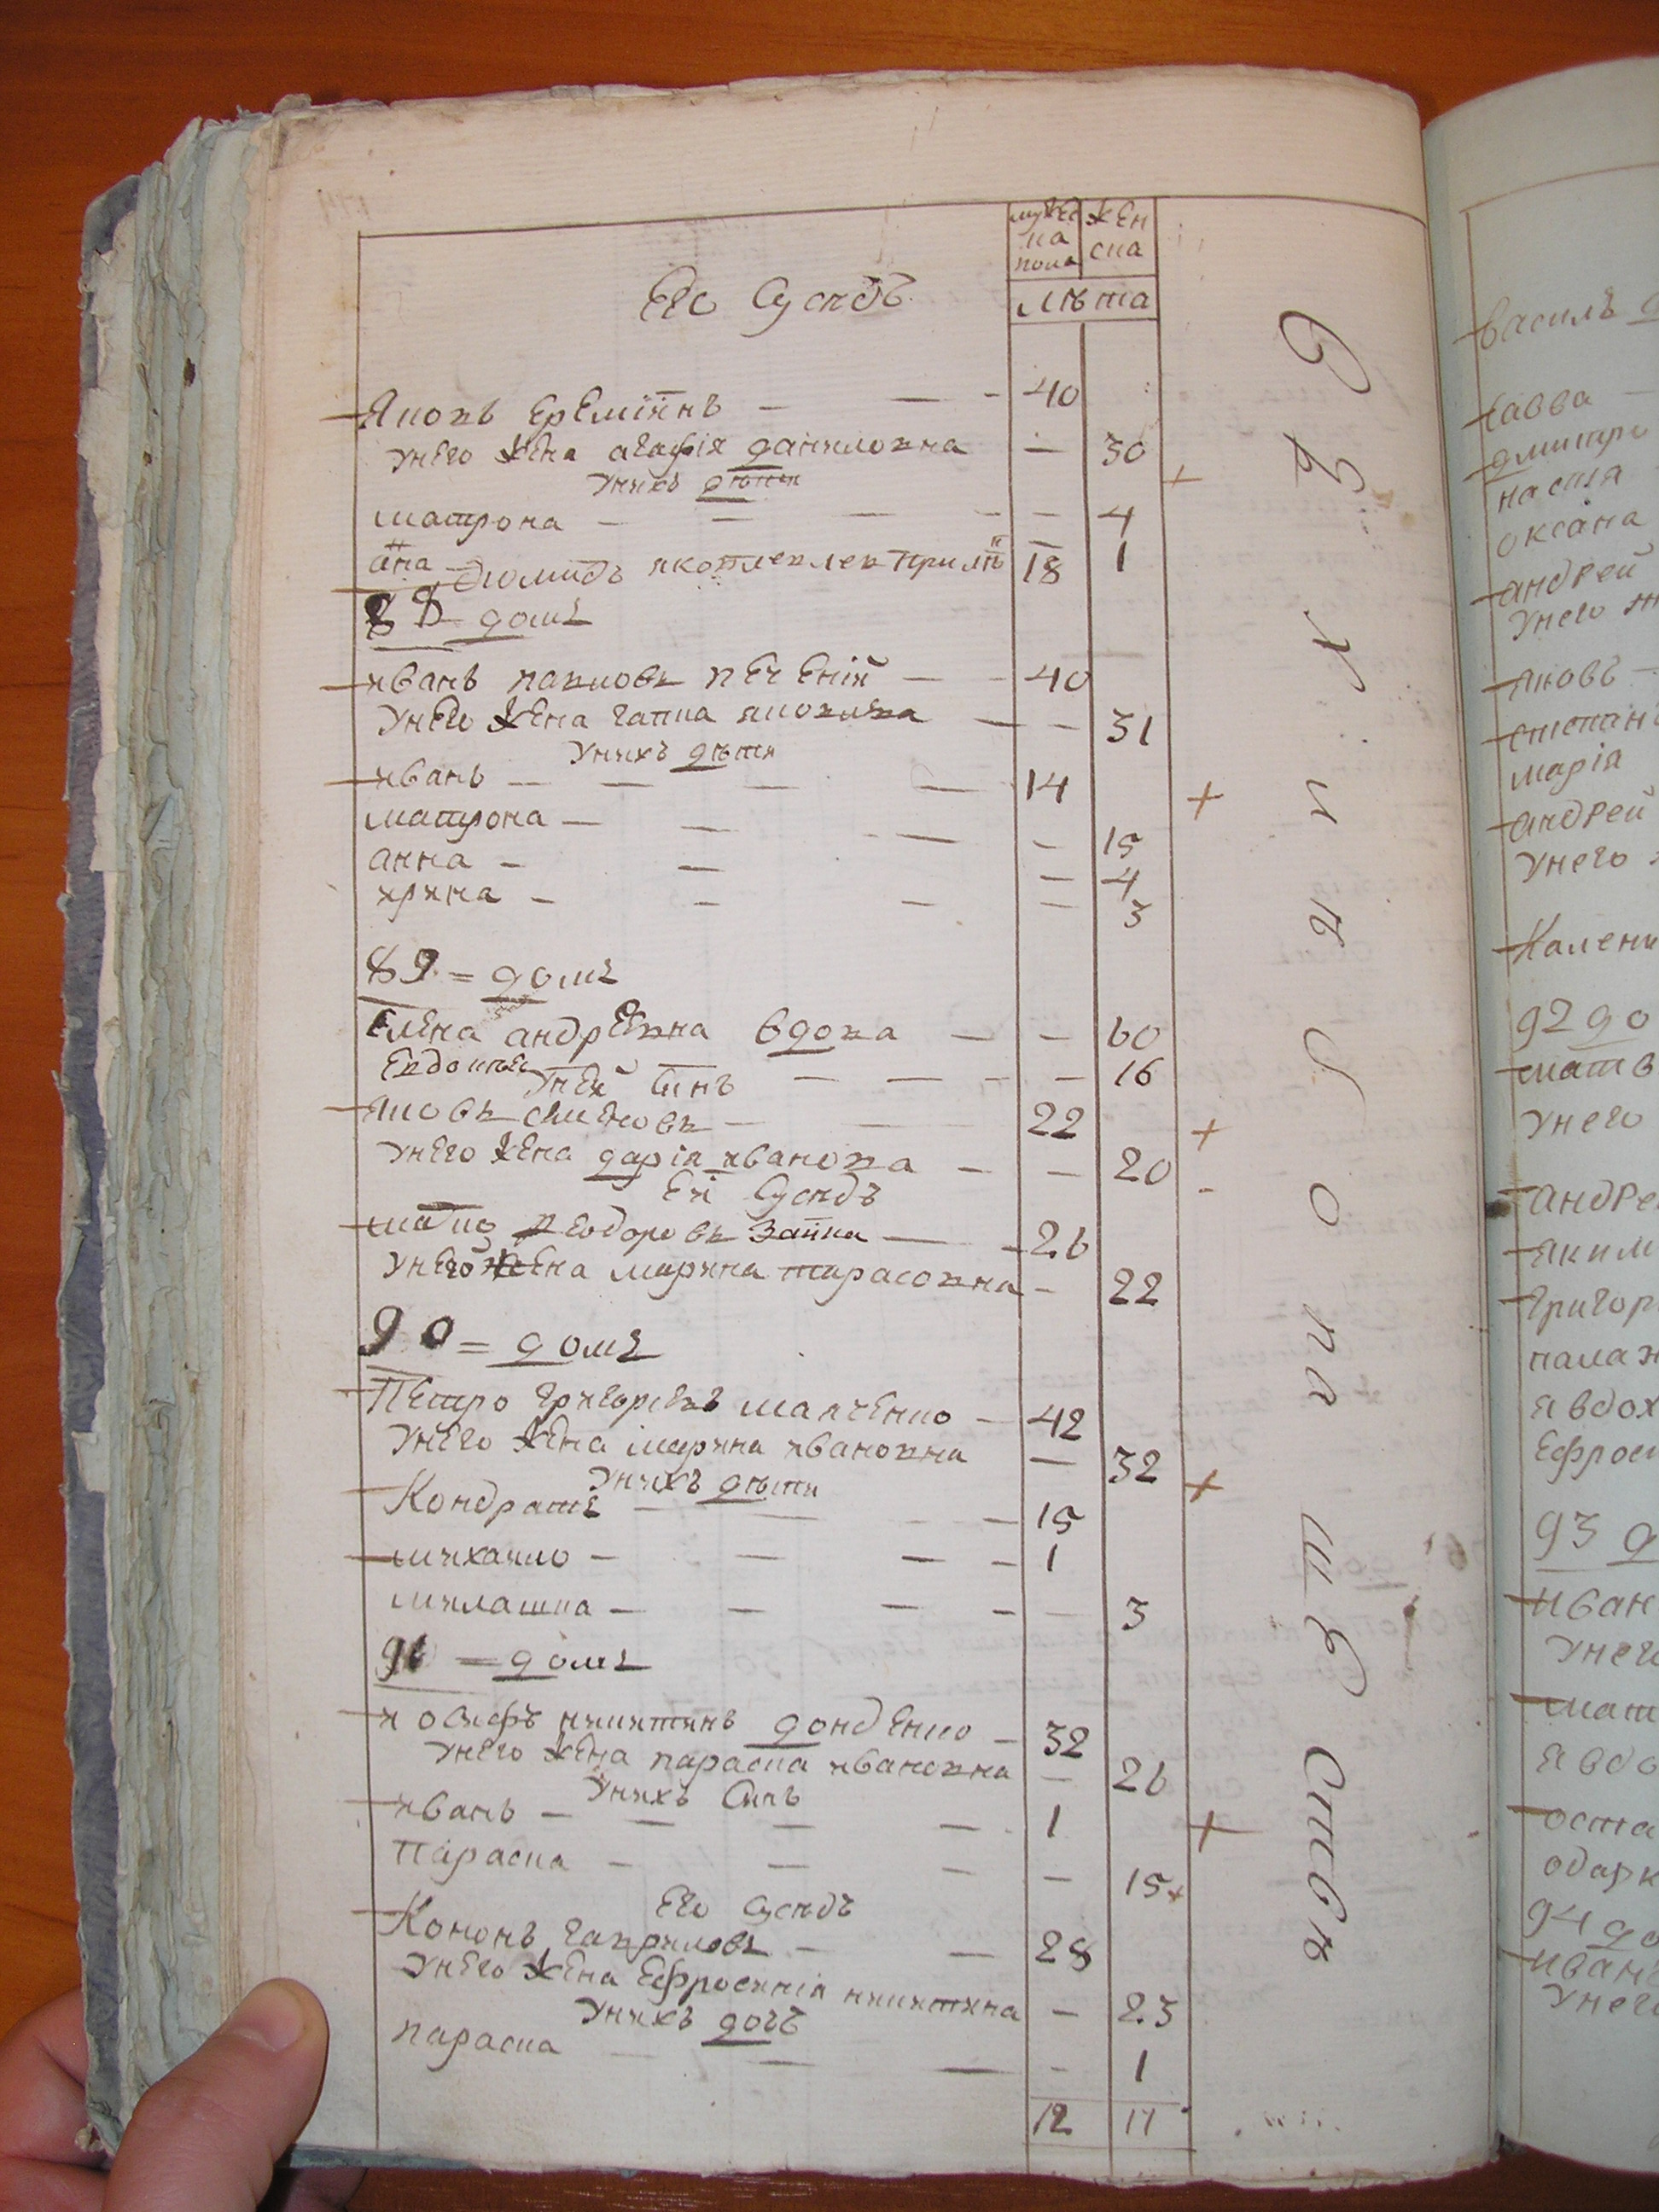 мужеска пола женска
лѣта
Его Сусѣдъ
Яковъ Еремѣинъ — — - 40
унего жена агафія даниловна — 30
унихъ дѣти
матрона — — — - — 4
анна — 1
Диомидъ яковлевъ 18
88 домъ
иванъ павловъ печеній — - 40
унего жена гапка яковлева — - 31
унихъ дѣти
иванъ — — — — 14
матрона — — — - 15
анна - — — 4
ирина - - — — 3
89 = домъ
Елена андреевна вдова — - 60
Евдокія — — - - 16
уней синъ
яковъ — — 22
унего жена дарія иванова — — 20
Еи Сусѣдъ
Феодоровъ Заика — - 26
унего жена марина тарасовна - 22
90 = домъ
Петро григоріевъ — 42
унего жена марина ивановна — 32
унихъ дѣти
Кондратъ — — - — 15
михайло - — — - 1
милашка — — — - - 3
91 = домъ
иосифъ никитинъ донденко — 32
унего жена параска ивановна — 26
унихъ Синъ
иванъ — — — — 1
Параска — — — — 15
Его Сусѣдъ
Кононъ гавриловъ - — 28
унего жена Ефросинія никитина — 23
унихъ дочъ
параска — — — - 1
12 17
василъ
савва —
дмитри
настя
оксана
андрей
унего ж
яковъ —
степанъ
марія
андрей
унего
Калени
92 до
матв
унего
андре
яким
григор
палаж
явдох
Ефрос
93 д
иван
унего
мат
явдо
оста
одарк
94 до
иван
унего